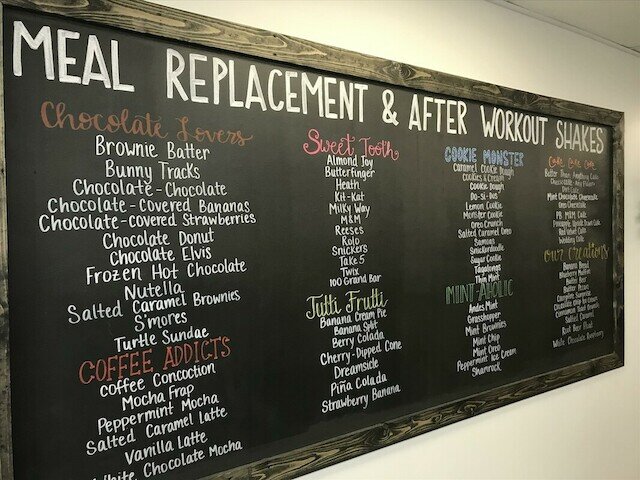 MEAL REPLACEMENT & AFTER WORKOUT SHAKES
Chocolate Lovers
Brownie Batter
Bunny Tracks
Chocolate-Chocolate
Chocolate-Covered Bananas
Chocolate-covered Strawberries
Chocolate Donut
Chocolate Elvis
Frozen Hot Chocolate
Nutella
Salted Caramel Brownies
S'mores
Turtle Sundae
COFFEE ADDICTS
Coffee Concoction
Mocha Frap
Peppermint Mocha
Salted Caramel Latte
Vanilla Latte
White Chocolate Mocha
Sweet Tooth
Almond Joy
Butterfinger
Heath
Kit-Kat
Milky Way
M&M
Reeses
Rolo
Snickers
Take 5
Twix
100 Grand Bar
Tutti Frutti
Banana Cream Pie
Banana Split
Berry Colada
Cherry-Dipped Cone
Dreamsicle
Piña Colada
Strawberry Banana
COOKIE MONSTER
Caramel Cookie Dough
Cookies & Cream
Cookie Dough
Do-Si-Dos
Lemon Cookie
Monster Cookie
Oreo Crunch
Salted Caramel Oreo
Samoas
Snickerdoodle
Sugar Cookie
Tagalongs
Thin Mint
MINT-AHOLIC
Andes Mint
Grasshopper
Mint Brownies
Mint Chip
Mint Oreo
Peppermint Ice Cream
Shamrock
Cake Cake Cake
Better Than Anything Cake
Mint Chocolate Cheesecake
Oreo Cheesecake
P.B. M&M Cake
Pineapple Upside Down Cake
Red Velvet Cake
Wedding Cake
Our Creations
Banana Bread
Blueberry Muffin
Butter Beer
Butter Pecan
Campfire S'mores
Chocolate Chip Pancakes
Cinnamon Toast Crunch
Salted Caramel
Root Beer Float
White Chocolate Raspberry